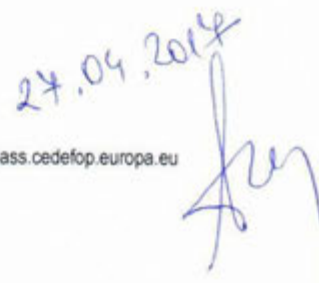 27.04.2017
ass.cedefop.europa.eu